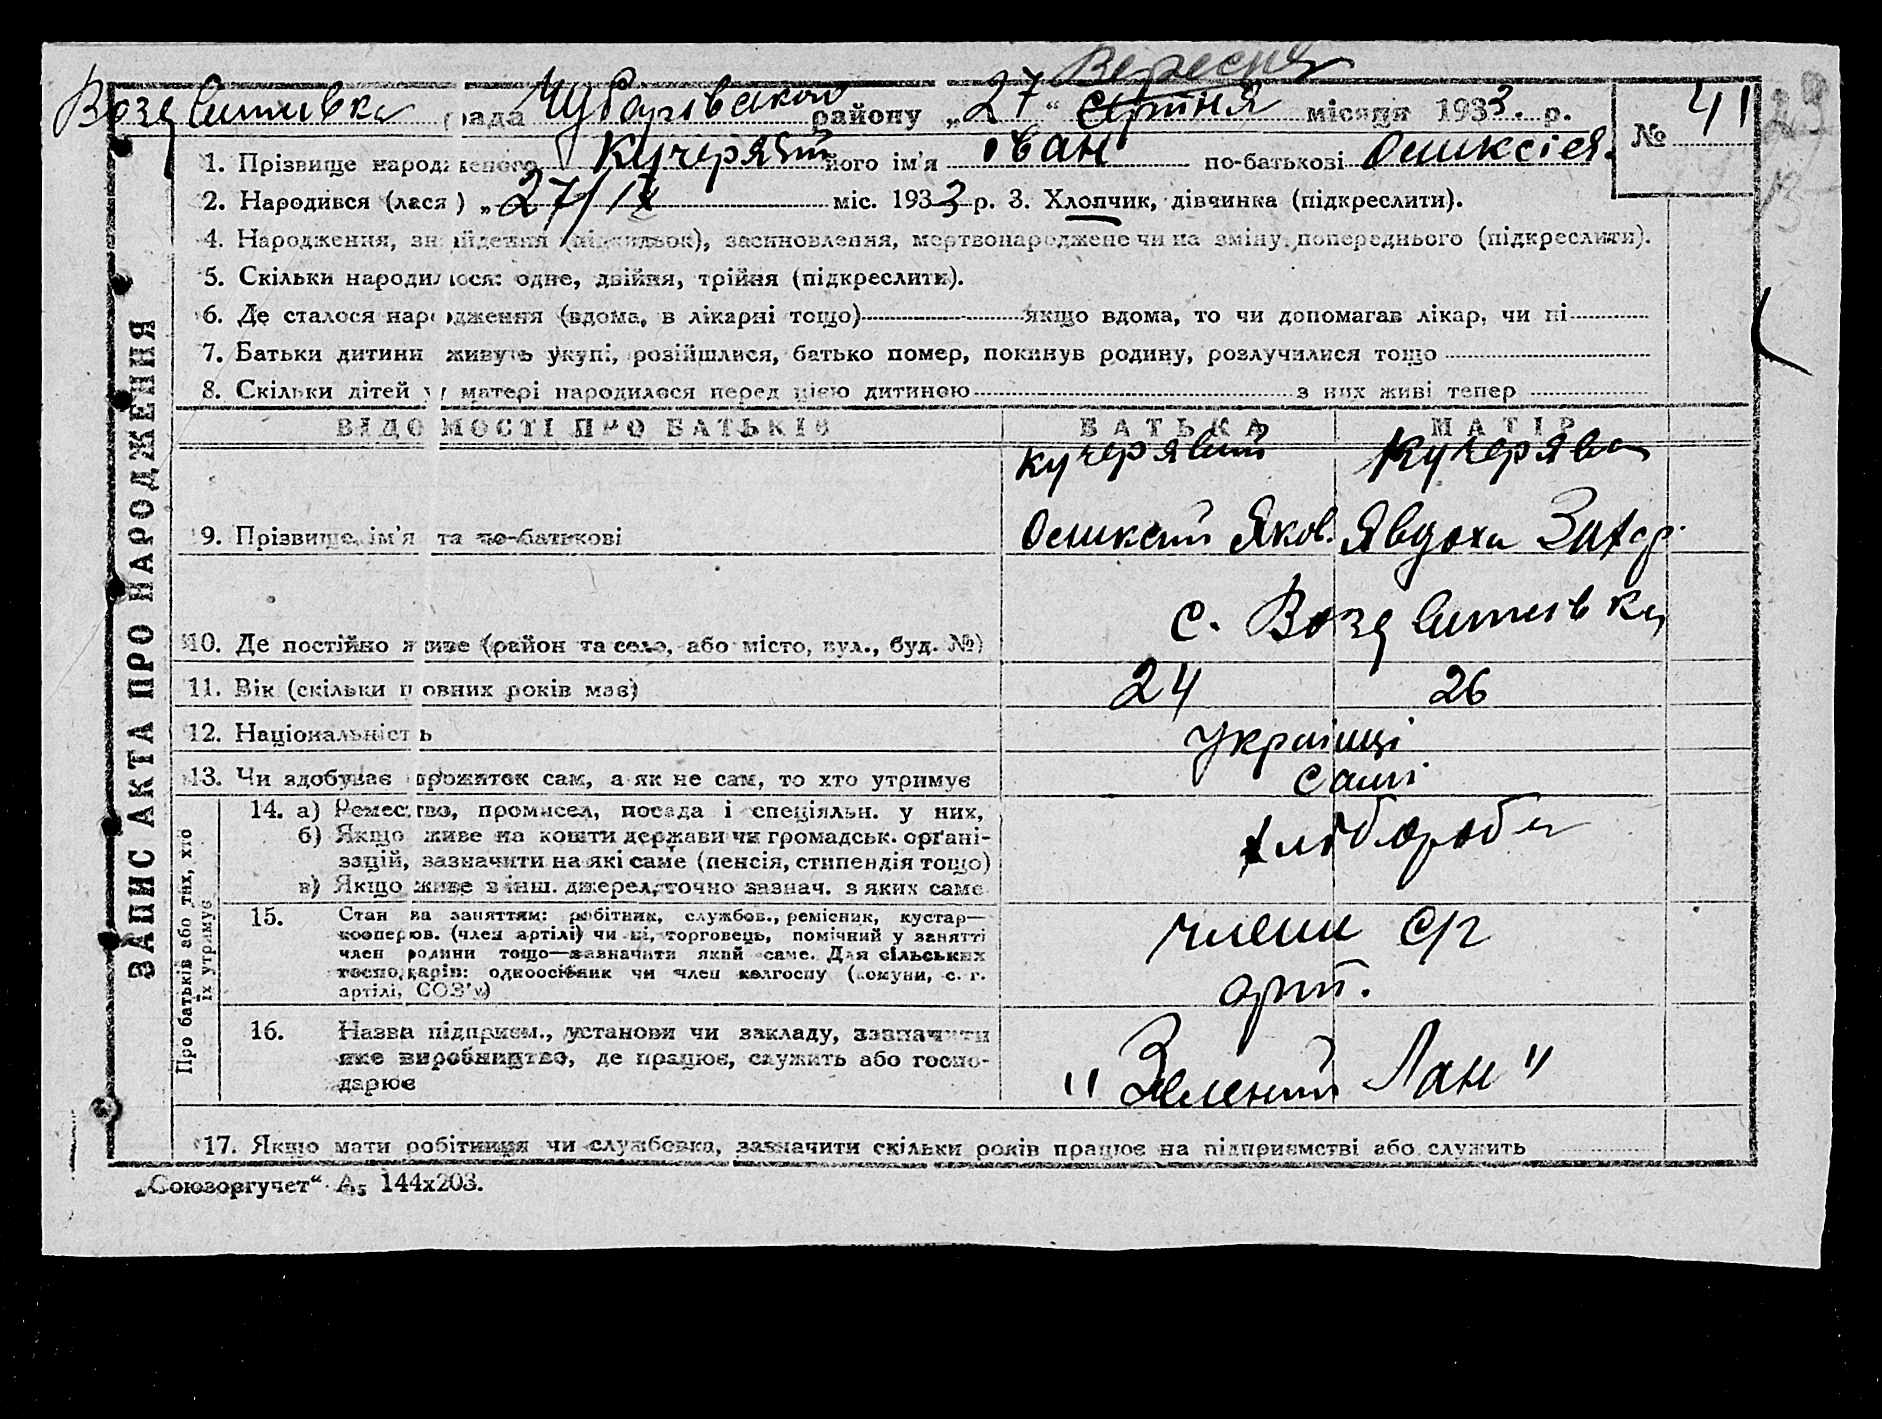 Вересня
Воздвижівка рада Чубарівського району „27“ Серпня місяця 1933. р. № 41 29
1. Прізвище народженого Кучерявий його ім'я Іван по-батькові
2. Народився (лася) „27/IX міс. 1933 р. 3. Хлопчик, дівчинка (підкреслити).
4. Народження, знайдення (підкидьок), засиновлення, мертвонароджене чи на зміну попереднього (підкреслити).
5. Скільки народилося: одне, двійня, трійня (підкреслити).
6. Де сталося народження (вдома, в лікарні тощо) якщо вдома, то чи допомагав лікар, чи ні
7. Батьки дитини живуть укупі, розійшлися, батько помер, покинув родину, розлучилися тощо
8. Скільки дітей у матері народилося перед цією дитиною з них живі тепер
ЗАПИС АКТА ПРО НАРОДЖЕННЯ
ВІДОМОСТІ ПРО БАТЬКІВ БАТЬКА МАТІР
Кучерявий Кучерява
9. Прізвище, ім'я та по-батькові Яков. Явдоха Захар.
10. Де постійно живе (район та село, або місто, вул., буд. №) с. Воздвижівка
11. Вік (скільки повних років має) 24 26
12. Національність Українці
13. Чи здобуває прожиток сам, а як не сам, то хто утримує самі
Про батьків або тих, хто
їх утримує
14. а) Ремество, промисел, посада і спеціяльн. у них,
б) Якщо живе на кошти держави чи громадськ. органі-
зацій, зазначити на які саме (пенсія, стипендія тощо)
в) Якщо живе з інш. джерел, точно зазнач. з яких саме
хлібороби
15. Стан на заняттям: робітник, службов., ремісник, кустар—
кооперов. (член артілі) чи ні, торговець, помічний у занятті
член родини тощо—зазначити який саме. Для сільських
господарів: одноосібник чи член колгоспу (комуни, с. г.
артілі, СОЗ'у)
члени с/г
арт.
16. Назва підприєм., установи чи закладу, зазначити
яке виробництво, де працює, служить або госпо-
дарює
"Зелений Лан"
17. Якщо мати робітниця чи службовка, зазначити скільки років працює на підприємстві або служить
„Союзоргучет“ А₅ 144х203.